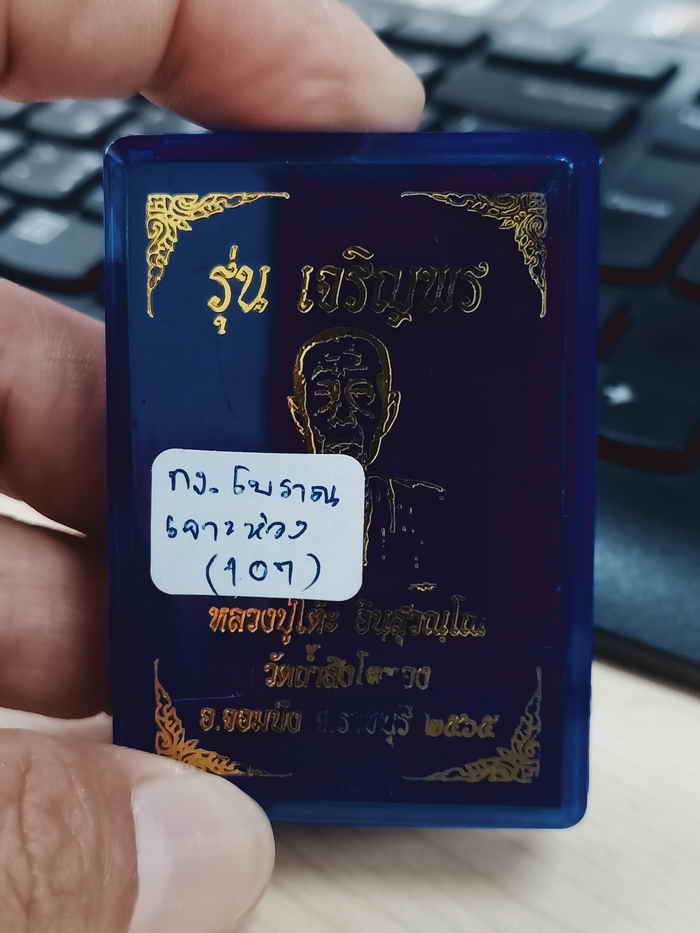 รุ่น เจริญพร
ทง. โบราณ
เจาะห่วง
(107)
หลวงปู่โต๊ะ อินฺทสุวณฺโณ
วัดถ้ำสิงโตทอง
อ.จอมบึง จ.ราชบุรี ๒๕๖๕